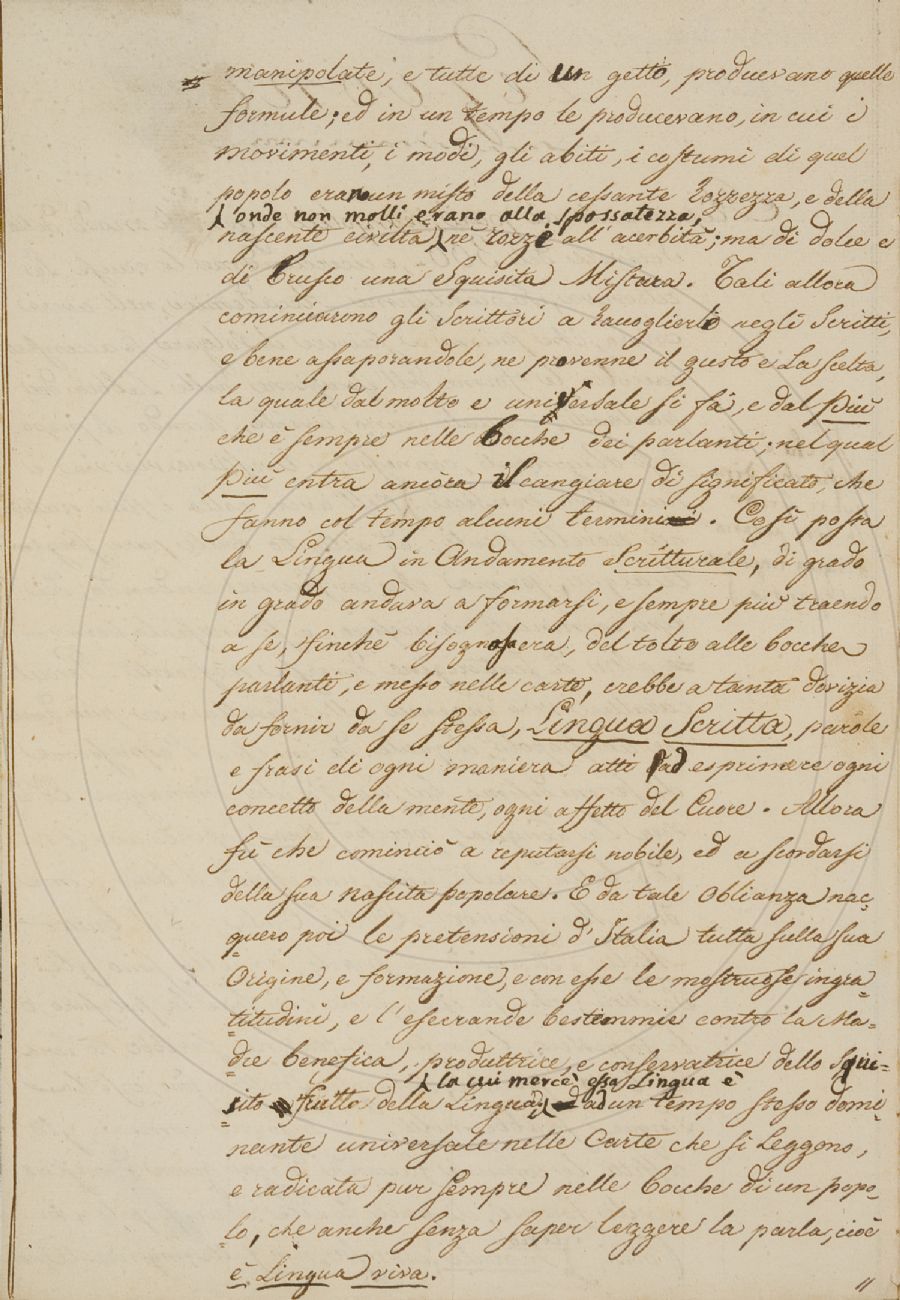 manipolate, e tutte di un getto, producevano quelle
formule; ed in un tempo le producevano, in cui i
movimenti, i modi, gli abiti, i costumi di quel
popolo eran un misto della cessante rozzezza, e della
onde non molli erano alla spossatezza,
nascente civiltà, nè rozzi all'acerbità; ma di dolce e
di brusco una squisita Mistura. Tali allora
cominciarono gli Scrittori a raccoglierle negli Scritti,
e bene assaporandole, ne provenne il gusto e La scelta,
la quale dal molto e universale si fà, e dal più
che è sempre nelle bocche dei parlanti; nel qual
più entra ancora il cangiare di significato, che
fanno col tempo alcuni termini. Così posta
la Lingua in Andamento Scritturale, di grado
in grado andava a formarsi, e sempre più traendo
a se, finchè bisogno era, del tolto alle bocche
parlanti, e messo nelle carte, crebbe a tanta dovizia
da fornir da se stessa, Lingua Scritta, parole
e frasi di ogni maniera atti ad esprimere ogni
concetto della mente, ogni affetto del Cuore. Allora
fù che cominciò a reputarsi nobile, ed a scordarsi
della sua nascita popolare. E da tale Oblianza nac
quero poi le pretensioni d'Italia tutta sulla sua
Origine, e formazione, e con esse le mostruose ingra-
titudini, e l'esecrande bestemmie contro la Ma-
dre benefica, produttrice, e conservatrice dello squi-
la cui mercè essa Lingua è
sito frutto della Lingua, ad un tempo stesso domi-
nante universale nelle Carte che si Leggono,
e radicata pur sempre nelle bocche di un popo-
lo, che anche senza saper leggere la parla, cioè
è Lingua viva.